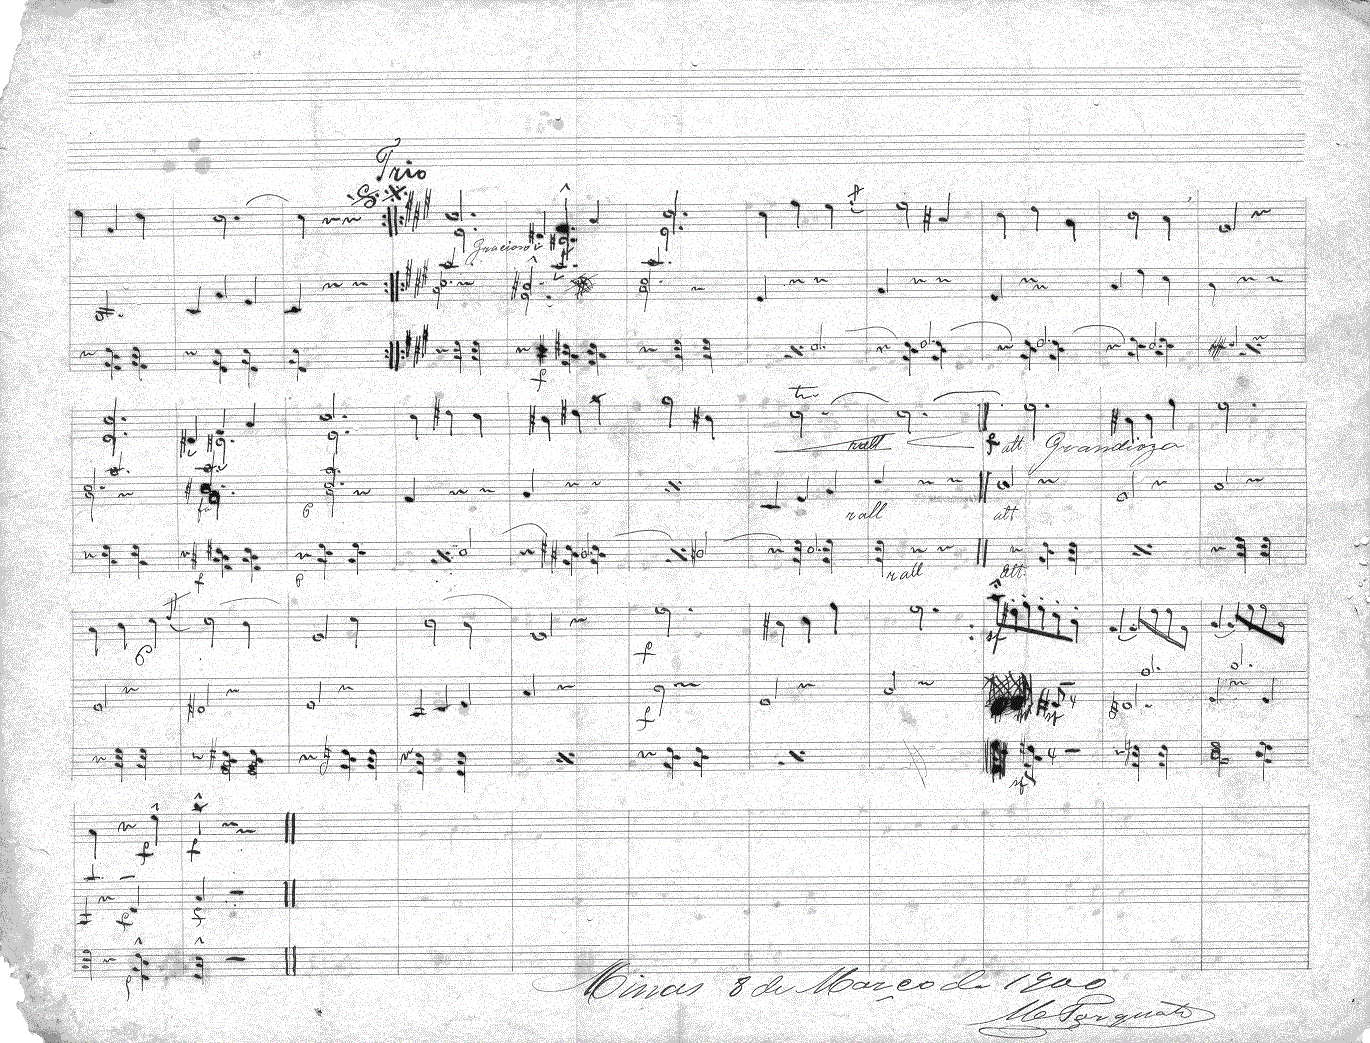 Trio
Gracioso
f
rall
f att Grandioza
fo
p
rall
att
f
p
rall
att.
p
f
sf
f
sf
sf
f
f
f
f
f
Minas 8 de Março de 1900